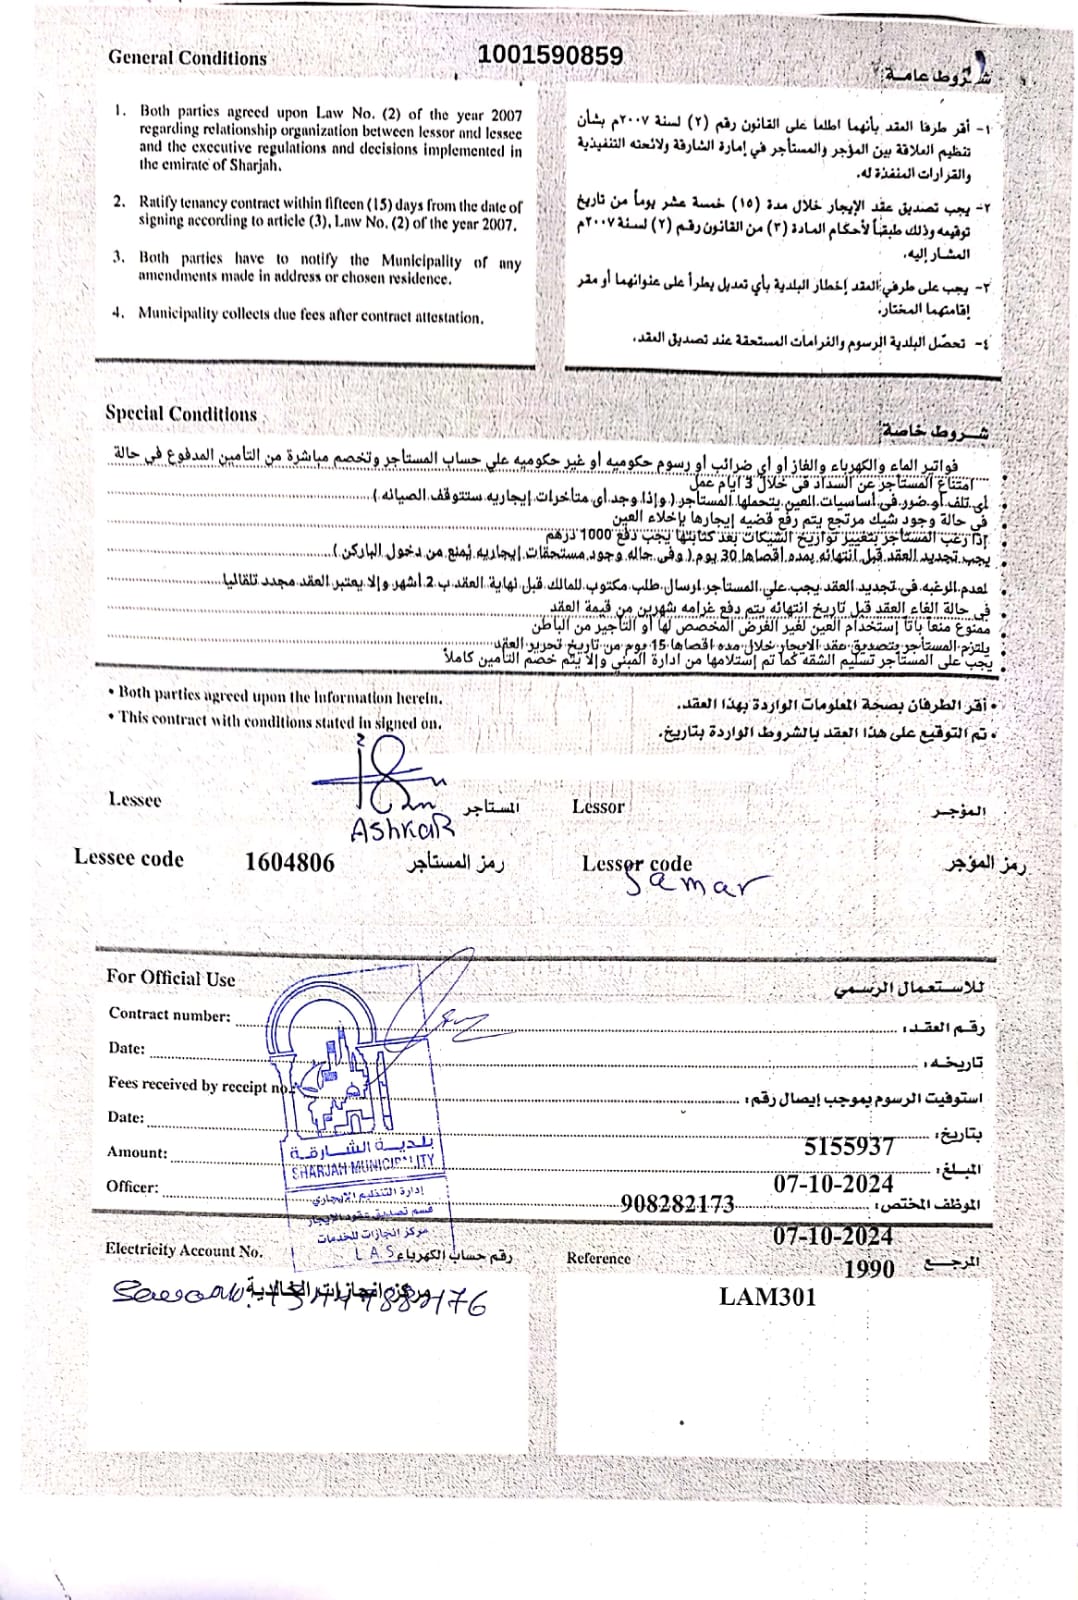 General Conditions
1001590859
شروط عامة:
1. Both parties agreed upon Law No. (2) of the year 2007
regarding relationship organization between lessor and lessee
and the executive regulations and decisions implemented in
the emirate of Sharjah.
2. Ratify tenancy contract within fifteen (15) days from the date of
signing according to article (3), Law No. (2) of the year 2007.
3. Both parties have to notify the Municipality of any
amendments made in address or chosen residence.
4. Municipality collects due fees after contract attestation.
١- أقر طرفا العقد بأنهما اطلعا على القانون رقم (٢) لسنة ٢٠٠٧م بشأن
تنظيم العلاقة بين المؤجر والمستأجر في إمارة الشارقة ولائحته التنفيذية
والقرارات المنفذة له.
٢- يجب تصديق عقد الإيجار خلال مدة (١٥) خمسة عشر يوماً من تاريخ
توقيعه وذلك طبقاً لأحكام المادة (٣) من القانون رقم (٢) لسنة ٢٠٠٧م
المشار إليه.
٣- يجب على طرفي العقد إخطار البلدية بأي تعديل يطرأ على عنوانهما أو مقر
إقامتهما المختار.
٤- تحصّل البلدية الرسوم والغرامات المستحقة عند تصديق العقد.
Special Conditions
شروط خاصة:
فواتير الماء والكهرباء والغاز او أي ضرائب أو رسوم حكوميه أو غير حكوميه علي حساب المستاجر وتخصم مباشرة من التأمين المدفوع في حالة
امتناع المستاجر عن السداد في خلال 3 ايام عمل
اي تلف او ضرر في أساسيات العين يتحملها المستأجر ( وإذا وجد اى متأخرات إيجاريه ستتوقف الصيانه )
في حالة وجود شيك مرتجع يتم رفع قضيه إيجارها بإخلاء العين
إذا رغب المستاجر بتغيير تواريخ الشيكات بعد كتابتها يجب دفع 1000 درهم
يجب تجديد العقد قبل انتهائه بمده أقصاها 30 يوم ( وفي حاله وجود مستحقات إيجاريه يُمنع من دخول الباركن )
لعدم الرغبه في تجديد العقد يجب علي المستأجر ارسال طلب مكتوب للمالك قبل نهاية العقد ب 2 أشهر وإلا يعتبر العقد مجدد تلقاليا
في حالة الغاء العقد قبل تاريخ انتهائه يتم دفع غرامه شهرين من قيمة العقد
ممنوع منعاً باتاً إستخدام العين لغير الغرض المخصص لها أو التأجير من الباطن
يلتزم المستأجر بتصديق عقد الايجار خلال مده اقصاها 15 يوم من تاريخ تحرير العقد
يجب على المستأجر تسليم الشقه كما تم إستلامها من ادارة المبني وإلا يتم خصم التأمين كاملاً
• Both parties agreed upon the information herein.
• This contract with conditions stated in signed on.
• أقر الطرفان بصحة المعلومات الواردة بهذا العقد.
• تم التوقيع على هذا العقد بالشروط الواردة بتاريخ.
Lessee المستاجر Lessor المؤجر
AshkaR
Lessee code 1604806 رمز المستأجر Lessor code رمز المؤجر
Samar
For Official Use للاستعمال الرسمي
Contract number: رقم العقد:
Date: تاريخه:
Fees received by receipt no. استوفيت الرسوم بموجب إيصال رقم:
Date: بتاريخ:
5155937
Amount: المبلغ:
07-10-2024
Officer: الموظف المختص:
908282173
بلدية الشارقة
SHARJAH MUNICIPALITY
إدارة التنظيم الإيجاري
قسم تصديق عقود الإيجار
مركز انجازات للخدمات
L A S
07-10-2024
Electricity Account No. رقم حساب الكهرباء Reference المرجع
1990
مركز انجازات الخالدية
LAM301